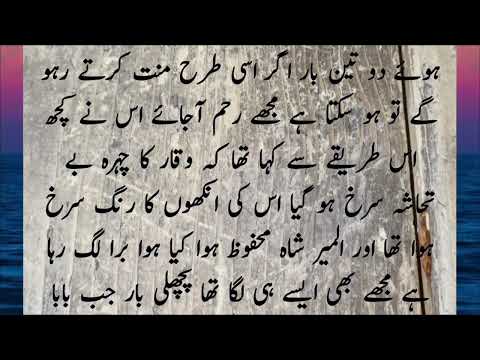 ہوئے دو تین بار اگر اسی طرح منت کرتے رہو
گے تو ہو سکتا ہے مجھے رحم آجائے اس نے کچھ
اس طریقے سے کہا تھا کہ وقار کا چہرہ بے
تحاشہ سرخ ہو گیا اس کی انکھوں کا رنگ سرخ
ہوا تھا اور المیر شاہ محفوظ ہوا کیا ہوا برا لگ رہا
ہے مجھے بھی ایسے ہی لگا تھا پچھلی بار جب بابا